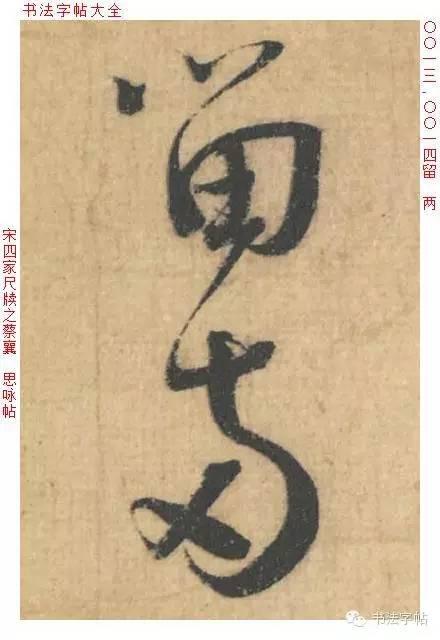 书法字帖大全
〇〇一三.〇〇一四留 两
留两
宋四家尺牍之蔡襄 思咏帖
书法字帖